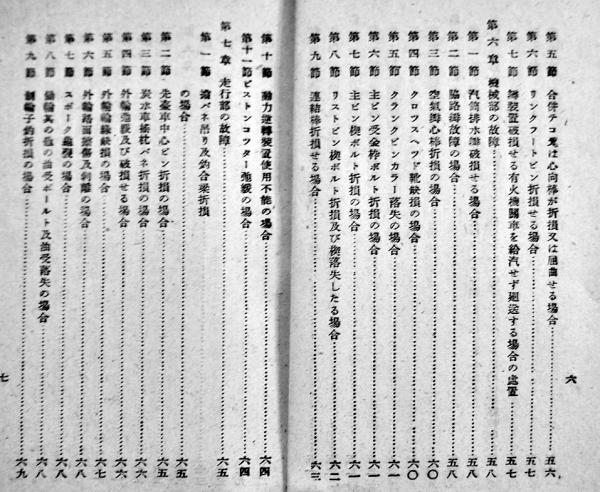 第五節 合併テコ又は心向棒が折損又は屈曲せる場合……五六
第六節 リンクフートピン折損せる場合……五七
第七節 弁装置破損せる有火機関車を給汽せず廻送する場合の処置……五七
第六章 機械部の故障……五八
第一節 汽筒排水弁破損せる場合……五八
第二節 脇路弁故障の場合……五八
第三節 空気弁心棒折損の場合……六〇
第四節 クロツスヘツド靴缺損の場合……六〇
第五節 クランクピンカラー落失の場合……六一
第六節 主ピン受金棒ボルト折損の場合……六一
第七節 主ピン楔ボルト折損の場合……六一
第八節 リストピン楔ボルト折損及び楔落失したる場合……六二
第九節 連結棒折損せる場合……六三
六
第十節 動力逆転装置使用不能の場合……六四
第十一節 ピストンコツター弛緩の場合……六四
第七章 走行部の故障……六五
第一節 担バネ吊り及釣合梁折損
の場合……六五
第二節 先台車中心ピン折損の場合……六六
第三節 炭水車揺枕バネ折損の場合……六六
第四節 外輪弛緩及び破損せる場合……六六
第五節 外輪輪縁缺損の場合……六七
第六節 外輪踏面擦傷及剥離の場合……六八
第七節 スポーク亀裂の場合……六八
第八節 動輪其の他の油受ボールト及油受落失の場合……六八
第九節 制輪子釣折損の場合……六九
七